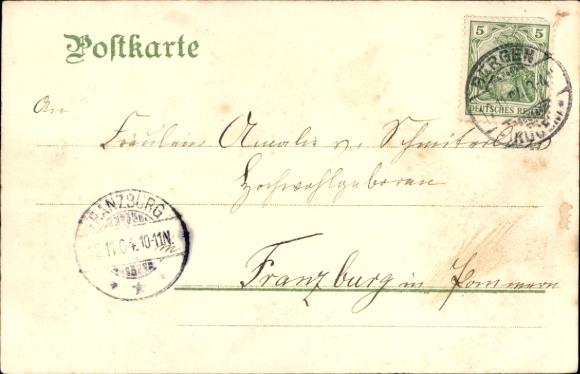 Postkarte
5 5
DEUTSCHES REICH
BERGEN
An
Fräulein Amalie v.
Hochwohlgeboren
FRANZBURG
12.11.04.10-11N.
Franzburg in Pommern